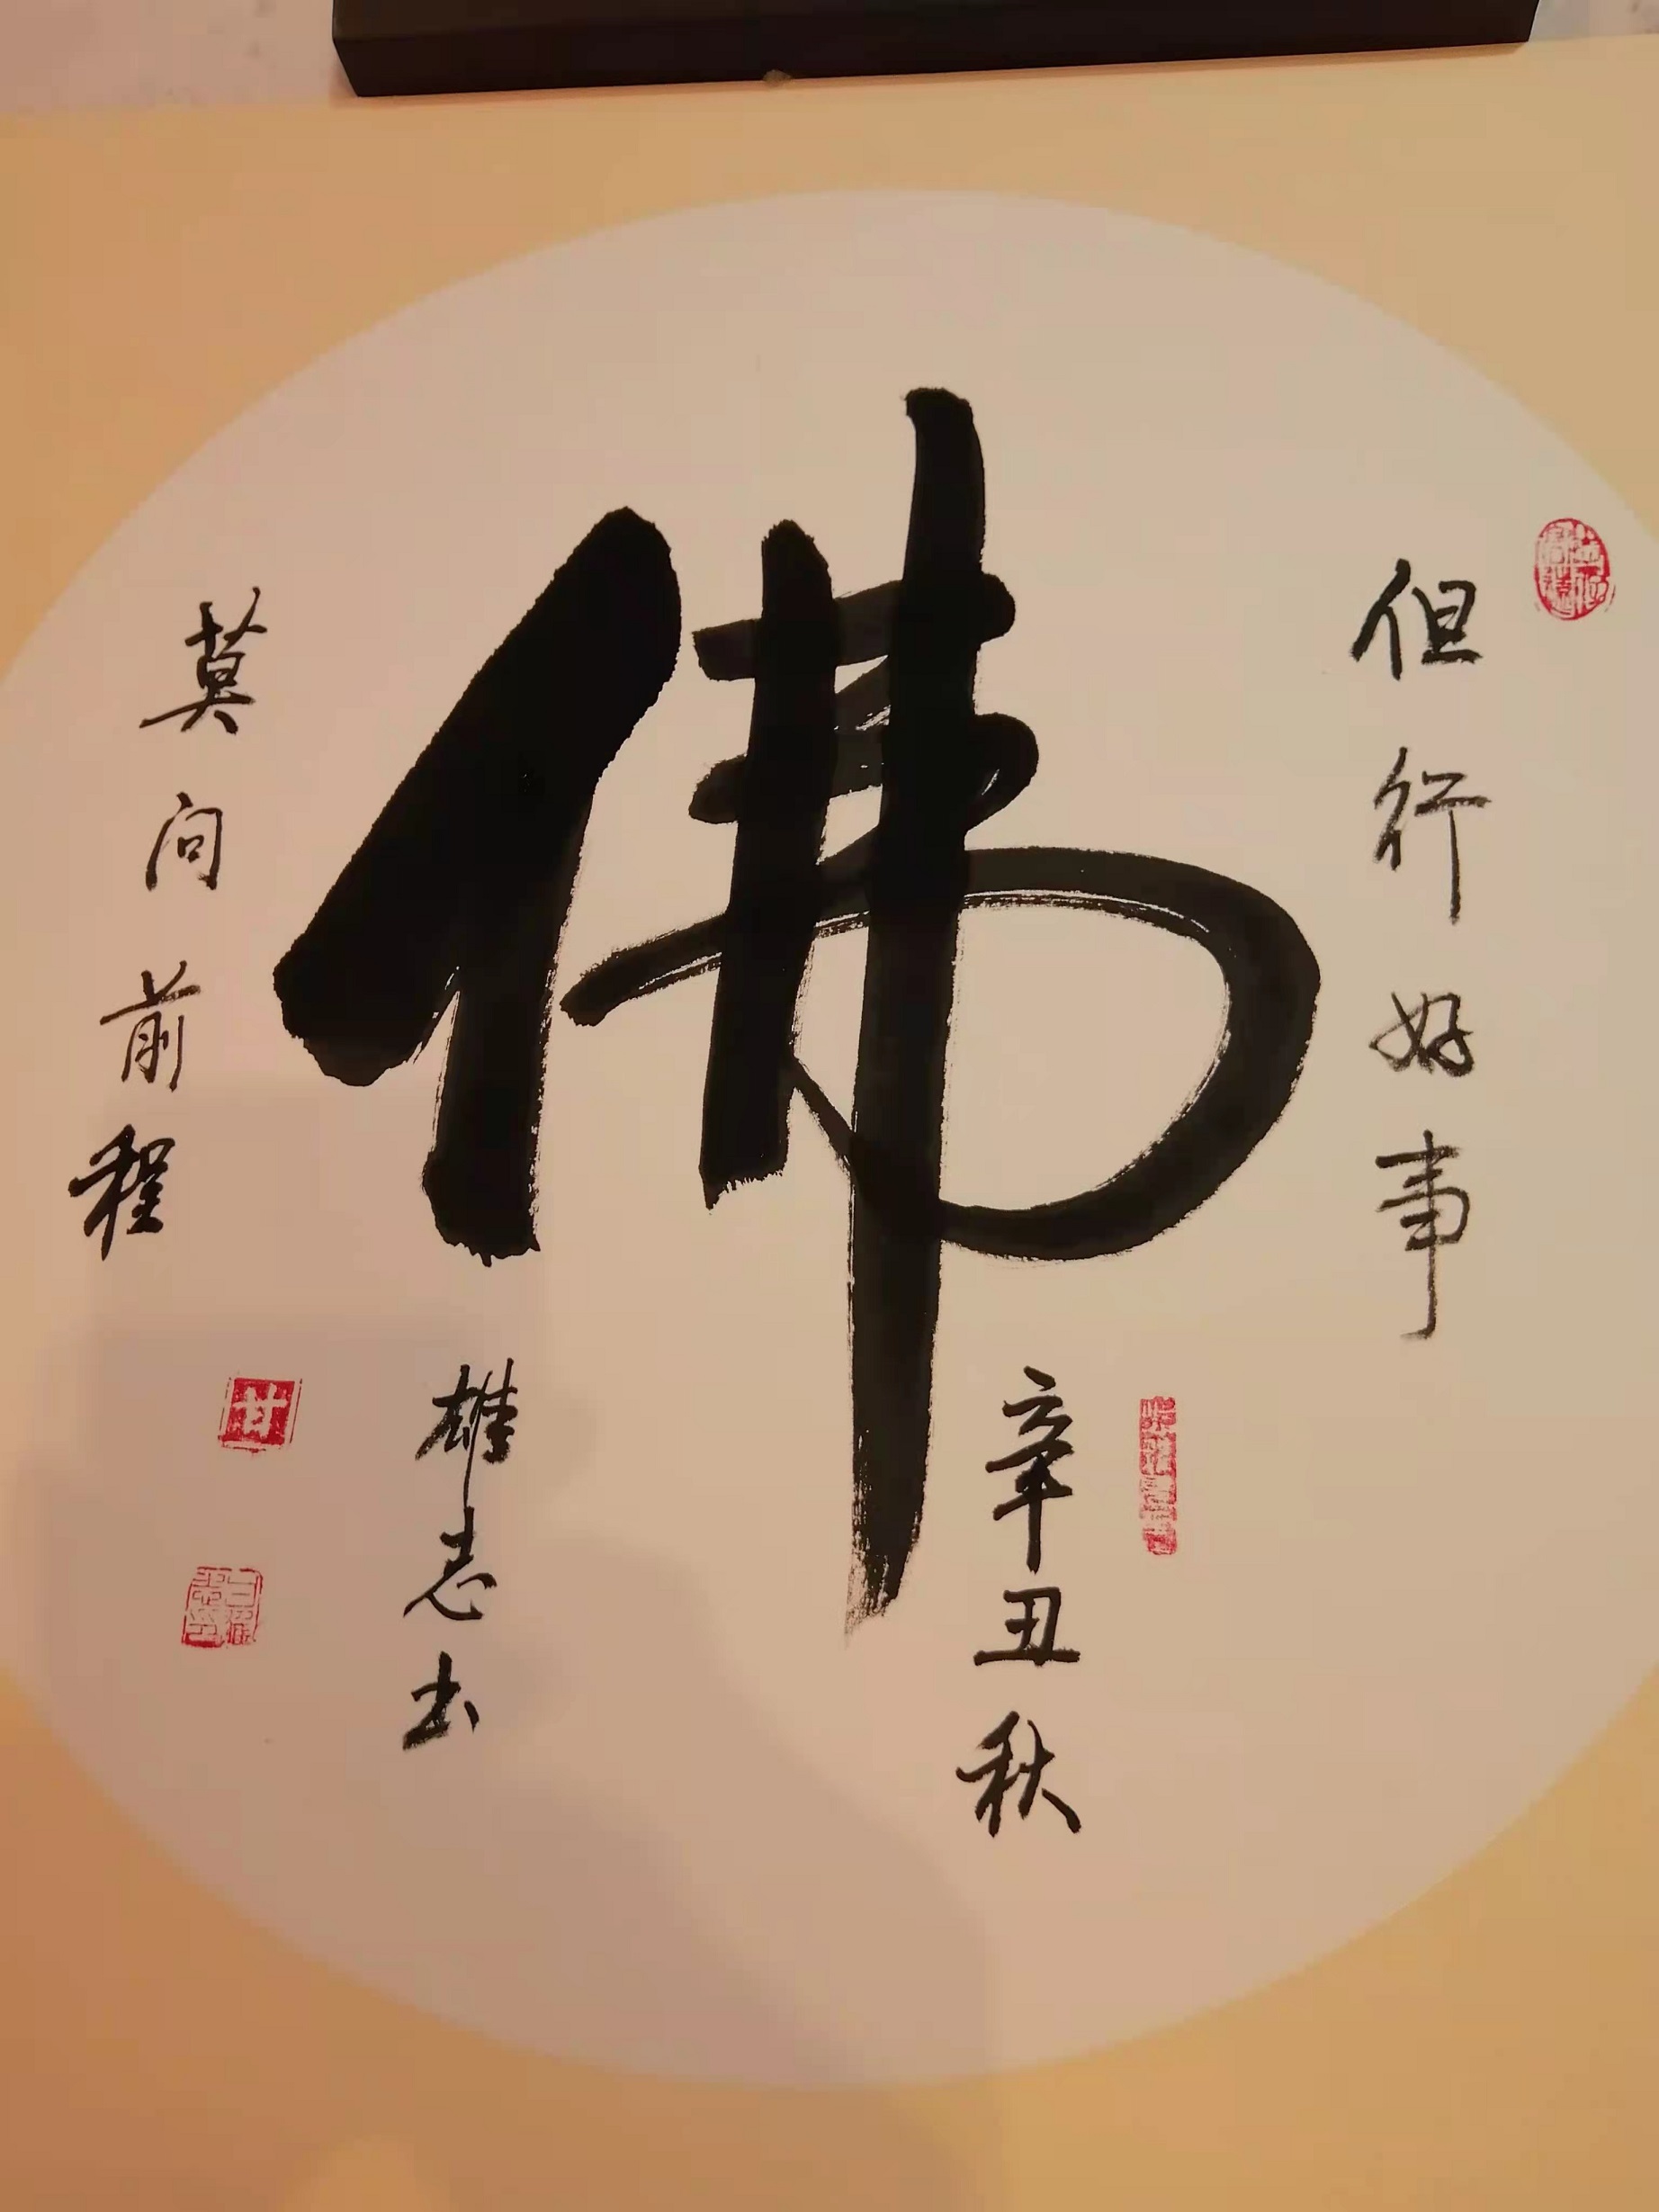 但行好事
佛
莫问前程
辛丑秋
雄志书
甘